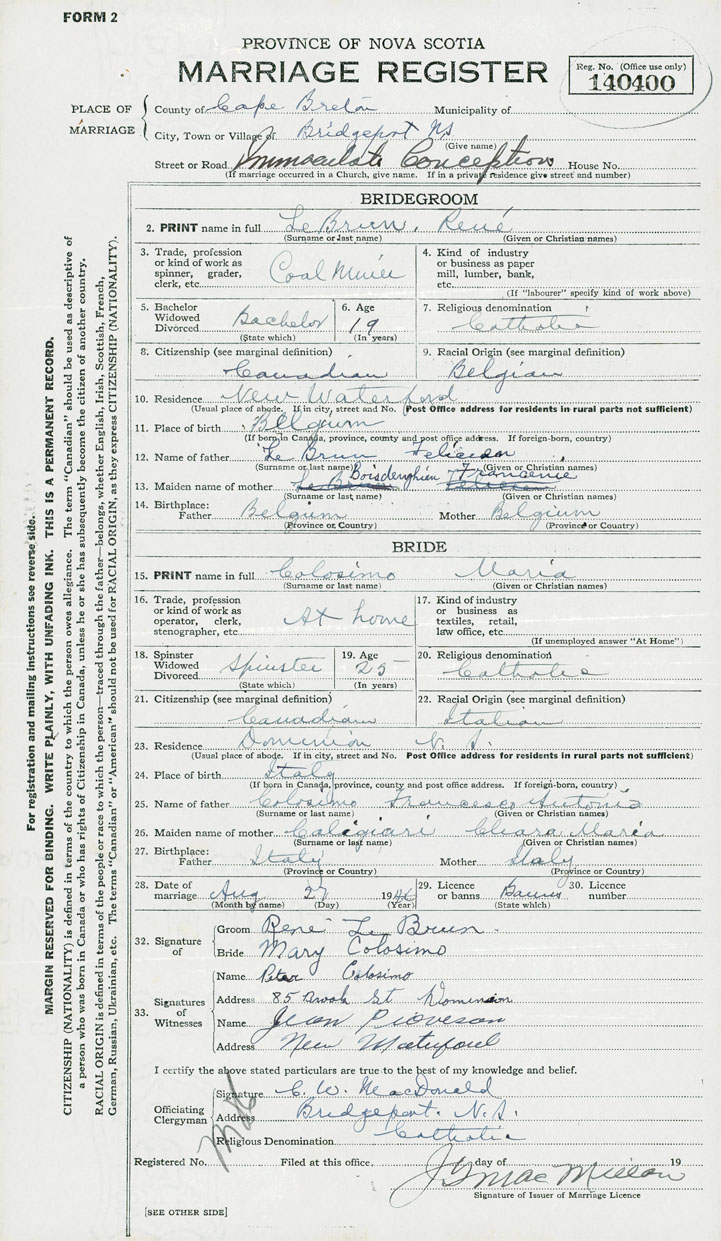 FORM 2
PROVINCE OF NOVA SCOTIA
MARRIAGE REGISTER
Reg. No. (Office use only)
140400
PLACE OF MARRIAGE
County of Cape Breton Municipality of
City, Town or Village of Bridgeport NS
(Give name)
Street or Road Immaculate Conception House No.
(If marriage occurred in a Church, give name. If in a private residence give street and number)
BRIDEGROOM
2. PRINT name in full LeBrun, René
(Surname or last name) (Given or Christian names)
3. Trade, profession or kind of work as spinner, grader, clerk, etc. Coal Miner
4. Kind of industry or business as paper mill, lumber, bank, etc.
(If "labourer" specify kind of work above)
5. Bachelor Widowed Divorced Bachelor
(State which)
6. Age 19
(In years)
7. Religious denomination Catholic
8. Citizenship (see marginal definition) Canadian
9. Racial Origin (see marginal definition) Belgian
10. Residence New Waterford
(Usual place of abode. If in city, street and No. (Post Office address for residents in rural parts not sufficient)
11. Place of birth Belgium
(If born in Canada, province, county and post office address. If foreign-born, country)
12. Name of father Le Brun Felicien
(Surname or last name) (Given or Christian names)
13. Maiden name of mother Boisdenghien
(Surname or last name) (Given or Christian names)
14. Birthplace: Father Belgium Mother Belgium
(Province or Country) (Province or Country)
BRIDE
15. PRINT name in full Colosimo Maria
(Surname or last name) (Given or Christian names)
16. Trade, profession or kind of work as operator, clerk, stenographer, etc. At home
17. Kind of industry or business as textiles, retail, law office, etc.
(If unemployed answer "At Home")
18. Spinster Widowed Divorced Spinster
(State which)
19. Age 25
(In years)
20. Religious denomination Catholic
21. Citizenship (see marginal definition) Canadian
22. Racial Origin (see marginal definition) Italian
23. Residence Dominion N. S.
(Usual place of abode. If in city, street and No. Post Office address for residents in rural parts not sufficient)
24. Place of birth Italy
(If born in Canada, province, county and post office address. If foreign-born, country)
25. Name of father Colosimo Francesco Antonio
(Surname or last name) (Given or Christian names)
26. Maiden name of mother Caligiuri Chiara Maria
(Surname or last name) (Given or Christian names)
27. Birthplace: Father Italy Mother Italy
(Province or Country) (Province or Country)
28. Date of marriage Aug 27 1946
(Month by name) (Day) (Year)
29. Licence or banns Banns
(State which)
30. Licence number
32. Signature of
Groom René Le Brun
Bride Mary Colosimo
33. Signatures of Witnesses
Name Peter Colosimo
Address 85 Brook St Dominion
Name Jean Piovesan
Address New
I certify the above stated particulars are true to the best of my knowledge and belief.
Officiating Clergyman
Signature C. W. MacDonald
Address Bridgeport. N. S.
Religious Denomination Catholic
Registered No. Filed at this office day of 19
J G MacMillan
Signature of Issuer of Marriage Licence
[SEE OTHER SIDE]
For registration and mailing instructions see reverse side.
MARGIN RESERVED FOR BINDING. WRITE PLAINLY, WITH UNFADING INK. THIS IS A PERMANENT RECORD.
CITIZENSHIP (NATIONALITY) is defined in terms of the country to which the person owes allegiance. The term "Canadian" should be used as descriptive of
a person who was born in Canada or who has rights of Citizenship in Canada, unless he or she has subsequently become the citizen of another country.
RACIAL ORIGIN is defined in terms of the people or race to which the person—traced through the father—belongs, whether English, Irish, Scottish, French,
German, Russian, Ukrainian, etc. The terms "Canadian" or "American" should not be used for RACIAL ORIGIN, as they express CITIZENSHIP (NATIONALITY).